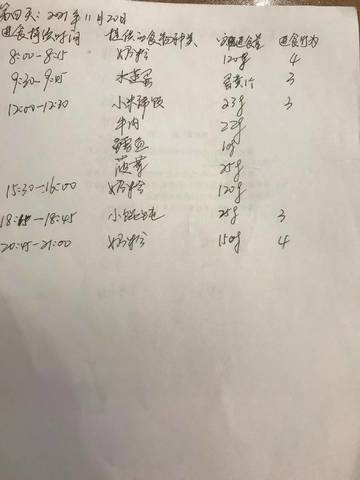 第四天：2021年11月20日
进食持续时间 提供的食物种类 实际进食量 进食行为
8:00-8:15 奶粉 120g 4
9:30-9:45 水蒸蛋 3
12:00-12:30 小米稀饭 23g 3
牛肉 22g
鳕鱼 10g
菠菜 25g
15:30-16:00 奶粉 120g
18:15-18:45 小馄饨 25g 3
20:45-21:00 奶粉 150g 4